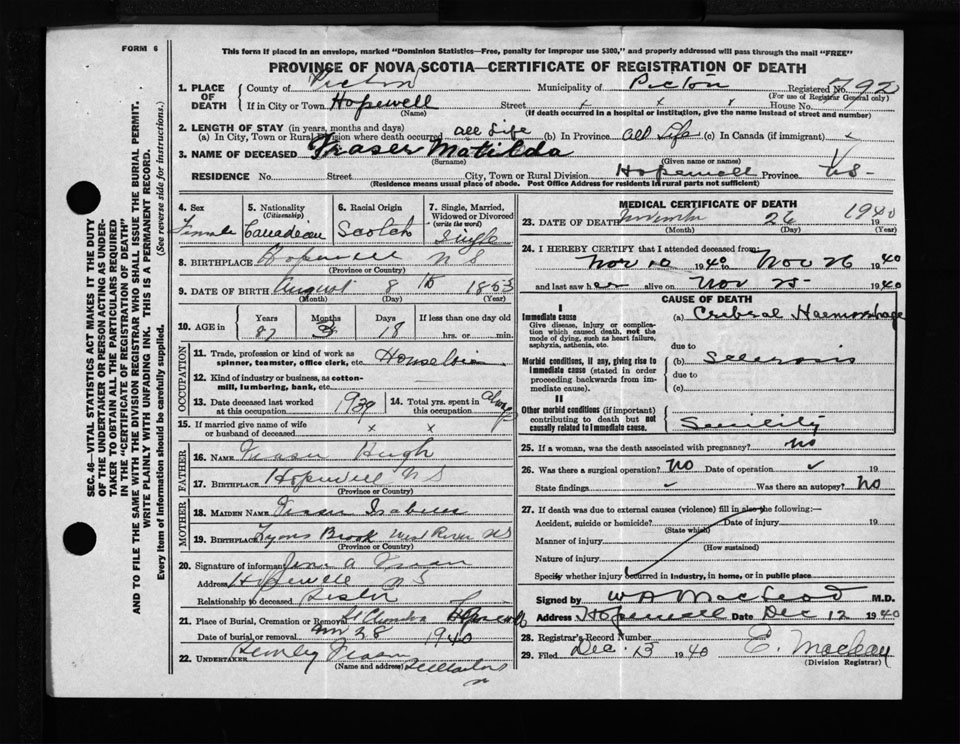 FORM 6
This form if placed in an envelope, marked "Dominion Statistics—Free, penalty for improper use $300," and properly addressed will pass through the mail "FREE"
PROVINCE OF NOVA SCOTIA—CERTIFICATE OF REGISTRATION OF DEATH
1. PLACE OF DEATH
County of Pictou Municipality of Pictou Registered No. 792
(For use of Registrar General only)
If in City or Town Hopewell Street x x x House No.
(Name) (If death occurred in a hospital or institution, give the name instead of street and number)
2. LENGTH OF STAY (in years, months and days)
(a) In City, Town or Rural Division where death occurred all Life (b) In Province all Life (c) In Canada (if immigrant) x
3. NAME OF DECEASED Fraser Matilda
(Surname) (Given name or names)
RESIDENCE No. Street City, Town or Rural Division Hopewell Province NS-
(Residence means usual place of abode. Post Office Address for residents in rural parts not sufficient)
4. Sex
Female
5. Nationality
(Citizenship)
Canadian
6. Racial Origin
Scotch
7. Single, Married, Widowed or Divorced
(write the word)
Single
8. BIRTHPLACE Hopewell N S
(Province or Country)
9. DATE OF BIRTH August 8 th 1853
(Month) (Day) (Year)
10. AGE in
Years Months Days If less than one day old
87 3 18 hrs. or min.
OCCUPATION
11. Trade, profession or kind of work as spinner, teamster, office clerk, etc.
12. Kind of industry or business, as cotton-mill, lumbering, bank, etc.
13. Date deceased last worked at this occupation 1939
14. Total yrs. spent in this occupation always
15. If married give name of wife or husband of deceased x x
FATHER
16. NAME Fraser Hugh
17. BIRTHPLACE Hopewell N S
(Province or Country)
MOTHER
18. MAIDEN NAME Fraser Isabella
19. BIRTHPLACE Lyons Brook West River NS
(Province or Country)
20. Signature of informant A Fraser
Address Hopewell N S
Relationship to deceased Sister
21. Place of Burial, Cremation or Removal Hopewell
Date of burial or removal Nov 28 1940
22. UNDERTAKER Fraser
(Name and address)
MEDICAL CERTIFICATE OF DEATH
23. DATE OF DEATH November 26 1940
(Month) (Day) (Year)
24. I HEREBY CERTIFY that I attended deceased from:
Nov 10 1940 to Nov 26 1940
and last saw her alive on Nov 25- 1940
CAUSE OF DEATH
I
Immediate cause
Give disease, injury or complication which caused death, not the mode of dying, such as heart failure, asphyxia, asthenia, etc.
(a) Cerebral Haemorrhage
due to
Morbid conditions, if any, giving rise to immediate cause (stated in order proceeding backwards from immediate cause).
(b) Sclerosis
due to
(c)
II
Other morbid conditions (if important) contributing to death but not causally related to immediate cause.
Senility
25. If a woman, was the death associated with pregnancy? no
26. Was there a surgical operation? no Date of operation ✓ 19
State findings ✓ Was there an autopsy? no
27. If death was due to external causes (violence) fill in also the following:—
Accident, suicide or homicide? Date of injury 19
(State which)
Manner of injury
(How sustained)
Nature of injury
Specify whether injury occurred in industry, in home, or in public place
Signed by W A MacLeod M.D.
Address Hopewell Date Dec 12 1940
28. Registrar's Record Number
29. Filed Dec. 13 1940 E. Maclean
(Division Registrar)
SEC. 46—VITAL STATISTICS ACT MAKES IT THE DUTY
OF THE UNDERTAKER OR PERSON ACTING AS UNDER-
TAKER TO OBTAIN ALL THE PARTICULARS REQUIRED
IN THE "CERTIFICATE OF REGISTRATION OF DEATH"
AND TO FILE THE SAME WITH THE DIVISION REGISTRAR WHO SHALL ISSUE THE BURIAL PERMIT.
WRITE PLAINLY WITH UNFADING INK. THIS IS A PERMANENT RECORD.
Every item of information should be carefully supplied. (See reverse side for instructions.)